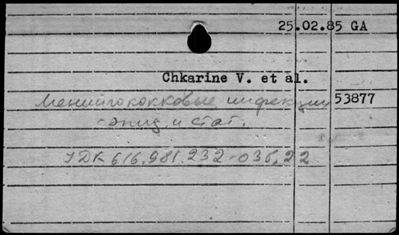 25.02.85 GA
Chkarine V. et al.
Менингококковые инфекции 53877
-эпид. и стат.
УДК 616.981.232-036.22